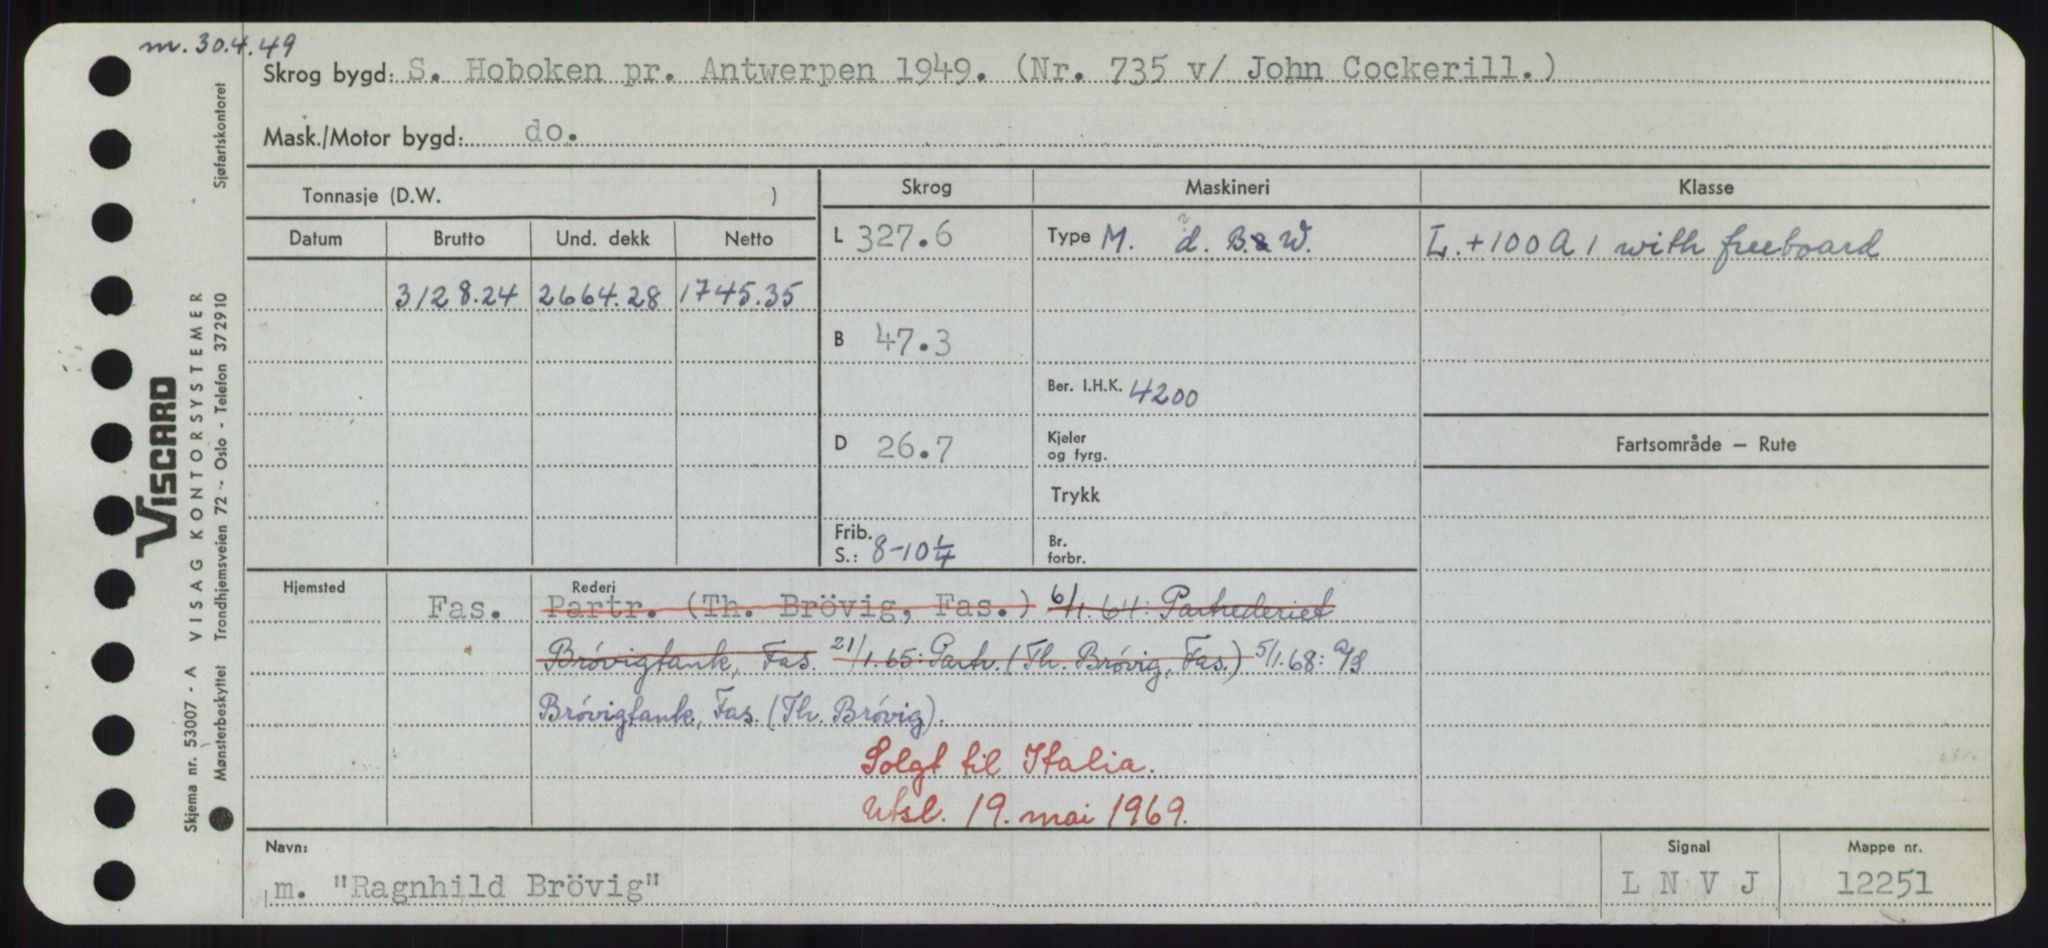 m. 30.4.49
Skrog bygd: S. Hoboken pr. Antwerpen 1949. (Nr. 735 v/ John Cockerill.)
Mask./Motor bygd: do.
Tonnasje (D.W. )
Skrog
Maskineri
Klasse
Datum
Brutto
Und. dekk
Netto
L 327.6
Type M. 2 d. B&W.
L. +100 A 1 with freeboard
3128.24
2664.28
1745.35
B 47.3
Ber. I.H.K. 4200
D 26.7
Kjeler
og fyrg.
Fartsområde — Rute
Trykk
Frib.
S.: 8-10 1/4
Br.
forbr.
Hjemsted
Rederi
Fas. Partr. (Th. Brövig, Fas.) 6/1.64: Partrederiet
Brövigtank, Fas. 21/1.65: Partr. (Th. Brövig, Fas.) 5/1.68: A/S
Brövigtank, Fas. (Th. Brövig).
Solgt til Italia.
Utsl. 19. mai 1969.
Navn:
m. "Ragnhild Brövig"
Signal
L N V J
Mappe nr.
12251
VISCARD
VISAG KONTORSYSTEMER
Skjema nr. 53007 - A
Sjøfartskontoret
Trondhjemsveien 72 - Oslo - Telefon 372910
Mønsterbeskyttet